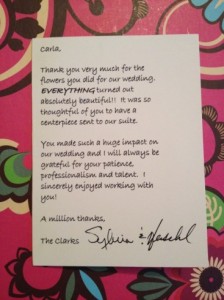 Carla,
Thank you very much for the
flowers you did for our wedding.
EVERYTHING turned out
absolutely beautiful!! It was so
thoughtful of you to have a
centerpiece sent to our suite.
You made such a huge impact on
our wedding and I will always be
grateful for your patience,
professionalism and talent. I
sincerely enjoyed working with
you!
A million thanks,
The Clarks